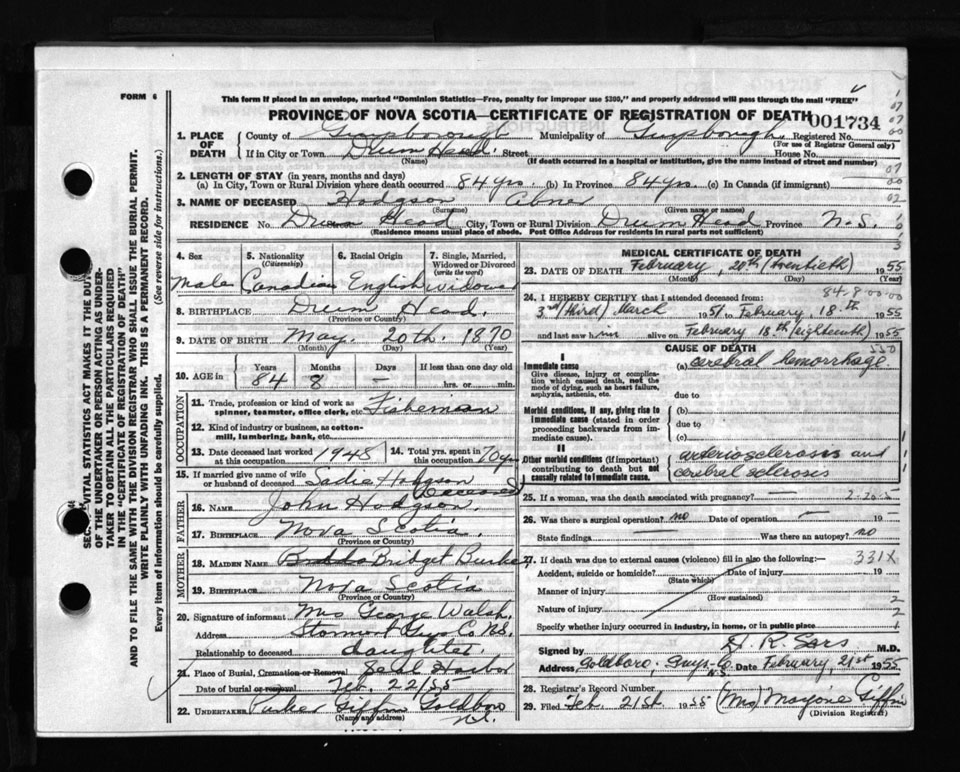 FORM 6
This form if placed in an envelope, marked "Dominion Statistics—Free, penalty for improper use $300," and properly addressed will pass through the mail "FREE"
PROVINCE OF NOVA SCOTIA—CERTIFICATE OF REGISTRATION OF DEATH 001734
1. PLACE OF DEATH County of Guysborough Municipality of Guysborough Registered No.
(For use of Registrar General only)
If in City or Town Drum Head Street House No.
(Name) (If death occurred in a hospital or institution, give the name instead of street and number)
2. LENGTH OF STAY (in years, months and days)
(a) In City, Town or Rural Division where death occurred 84 yrs. (b) In Province 84 yrs. (c) In Canada (if immigrant)
3. NAME OF DECEASED Hodgson Abner
(Surname) (Given name or names)
RESIDENCE No. Drum Head City, Town or Rural Division Drum Head Province N.S.
(Residence means usual place of abode. Post Office Address for residents in rural parts not sufficient)
4. Sex 5. Nationality (Citizenship) 6. Racial Origin 7. Single, Married, Widowed or Divorced (write the word)
Male Canadian English widowed
8. BIRTHPLACE Drum Head.
(Province or Country)
9. DATE OF BIRTH May. 20th. 1870
(Month) (Day) (Year)
10. AGE in Years Months Days If less than one day old
84 8 — hrs. or min.
OCCUPATION
11. Trade, profession or kind of work as spinner, teamster, office clerk, etc. Fisheman
12. Kind of industry or business, as cotton-mill, lumbering, bank, etc.
13. Date deceased last worked at this occupation 1948 14. Total yrs. spent in this occupation 70 yrs
15. If married give name of wife or husband of deceased Sadie Hodgson (deceased)
FATHER
16. NAME John Hodgson.
17. BIRTHPLACE Nova Scotia.
(Province or Country)
MOTHER
18. MAIDEN NAME Bridget Burke
19. BIRTHPLACE Nova Scotia
(Province or Country)
20. Signature of informant Mrs George Walsh.
Address Stormont Guys Co. N.S.
Relationship to deceased daughter
21. Place of Burial, Cremation or Removal Seal Harbor
Date of burial or removal Feb. 22/55
22. UNDERTAKER Parker Giffin Goldboro N.S.
(Name and address)
MEDICAL CERTIFICATE OF DEATH
23. DATE OF DEATH February, 20th (twentieth) 1955
(Month) (Day) (Year)
84.8.00.00
24. I HEREBY CERTIFY that I attended deceased from:
3rd (third) March 1951 to February, 18th 1955
and last saw him alive on February 18th (eighteenth) 1955
CAUSE OF DEATH
I
Immediate cause (a) cerebral hemorrhage
Give disease, injury or complication which caused death, not the mode of dying, such as heart failure, asphyxia, asthenia, etc.
due to
Morbid conditions, if any, giving rise to immediate cause (stated in order proceeding backwards from immediate cause).
(b)
due to
(c)
II
Other morbid conditions (if important) contributing to death but not causally related to immediate cause.
arteriosclerosis and
cerebral sclerosis
25. If a woman, was the death associated with pregnancy? —
26. Was there a surgical operation? no Date of operation — 19 —
State findings Was there an autopsy? no
27. If death was due to external causes (violence) fill in also the following:— 331X
Accident, suicide or homicide? Date of injury 19
(State which)
Manner of injury
(How sustained)
Nature of injury 2
Specify whether injury occurred in industry, in home, or in public place
Signed by M.D.
Address Goldboro, Guys-Co. N.S. Date February, 21st 1955
28. Registrar's Record Number
29. Filed Feb. 21st. 1955 (Mrs) Marjorie Giffin
(Division Registrar)
SEC. VITAL STATISTICS ACT MAKES IT THE DUTY
OF THE UNDERTAKER OR PERSON ACTING AS UNDER-
TAKER TO OBTAIN ALL THE PARTICULARS REQUIRED
IN THE "CERTIFICATE OF REGISTRATION OF DEATH"
AND TO FILE THE SAME WITH THE DIVISION REGISTRAR WHO SHALL ISSUE THE BURIAL PERMIT.
WRITE PLAINLY WITH UNFADING INK. THIS IS A PERMANENT RECORD.
Every item of information should be carefully supplied. (See reverse side for instructions.)